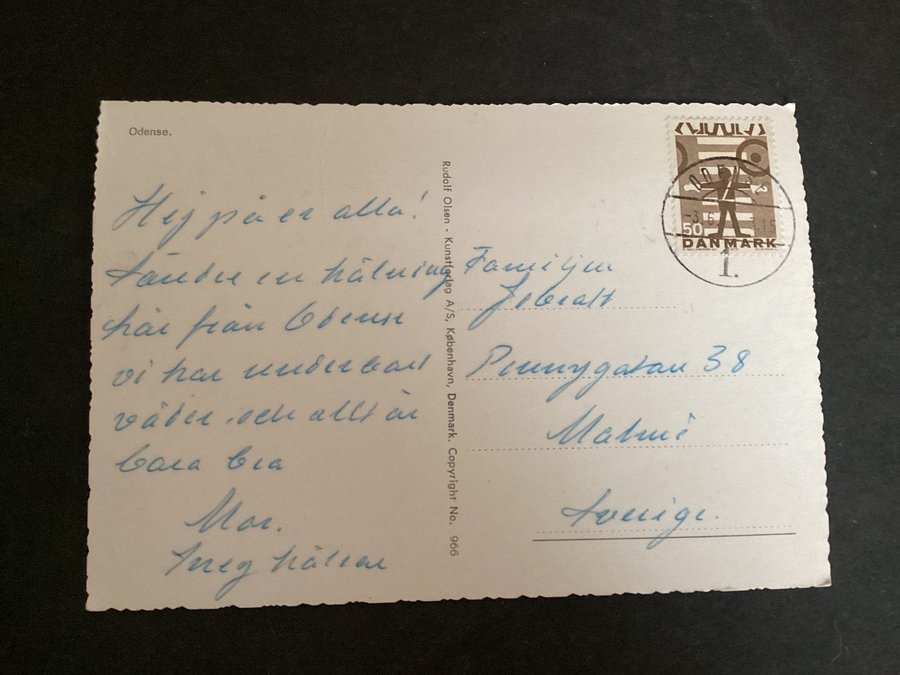 Odense.
Hej på er alla!
Sänder en hälsning
här från Odense
vi har underbart
väder och allt är
bara bra
Mor.
hälsar
Rudolf Olsen - Kunstforlag A/S, København, Denmark. Copyright No. 966
Familjen
38
Malmö
Sverige.
50
DANMARK
1.